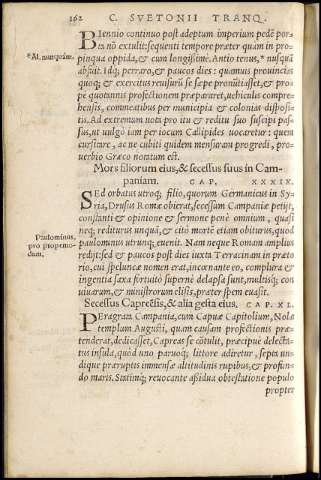 162 C. SVETONII TRANQ.
BIennio continuo post adeptum imperium pedē por-
ta nō extulit: sequenti tempore præter quam in pro-
pinqua oppida, & cum longissimè. Antio tenus, * nusquā
*Al. nunquam.
abfuit. Idq; perraro, & paucos dies: quamuis prouincias
quoq; & exercitus reuisurū se sæpe pronūtiasset, & pro-
pe quotannis profectionem præpararet, uehiculis compre-
hensis, commeatibus per municipia & colonias disposi-
tis. Ad extremum uota pro itu & reditu suo suscipi pas-
sus, ut uulgò iam per iocum Callipides uocaretur: quem
cursitare, ac ne cubiti quidem mensuram progredi, pro-
uerbio Græco notatum est.
Mors filiorum eius, & secessus suus in Cam-
paniam. CAP. XXXIX.
SEd orbatus utroq; filio, quorum Germanicus in Sy-
ria, Drusus Romæ obierat, secessum Campaniæ petijt,
constanti & opinione & sermone penè omnium, quasi
neq; rediturus unquā, & citò mortē etiam obiturus, quod
paulominus utrunq; euenit. Nam neque Romam amplius
Paulominus,
pro propemo-
dum.
redijt: sed & paucos post dies iuxta Terracinam in præto
rio, cui speluncæ nomen erat, incœnante eo, complura &
ingentia saxa fortuitò supernè delapsa sunt, multisq; con
uiuarum, & ministrorum elisis, præter spem euasit.
Secessus Caprēsis, & alia gesta eius. CAP. XL.
PEragrata Campania, cum Capuæ Capitolium, Nolæ
templum Augusti, quam causam profectionis præ-
tenderat, dedicasset, Capreas se cōtulit, præcipuè delecta-
tus insula, quòd uno paruoq; littore adiretur, septa un-
dique præruptis immensæ altitudinis rupibus, & profun-
do maris. Statimq; reuocante aßidua obtestatione populo
propter